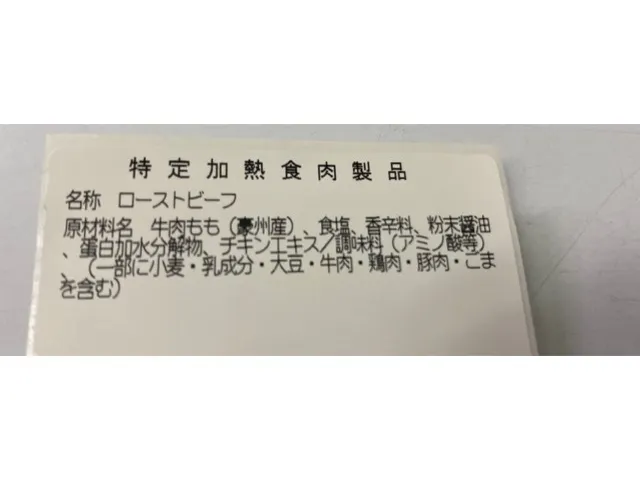 特定加熱食肉製品
名称 ローストビーフ
原材料名 牛肉もも（豪州産）、食塩、香辛料、粉末醤油
、蛋白加水分解物、チキンエキス／調味料（アミノ酸等）
、（一部に小麦・乳成分・大豆・牛肉・鶏肉・豚肉・ごま
を含む）